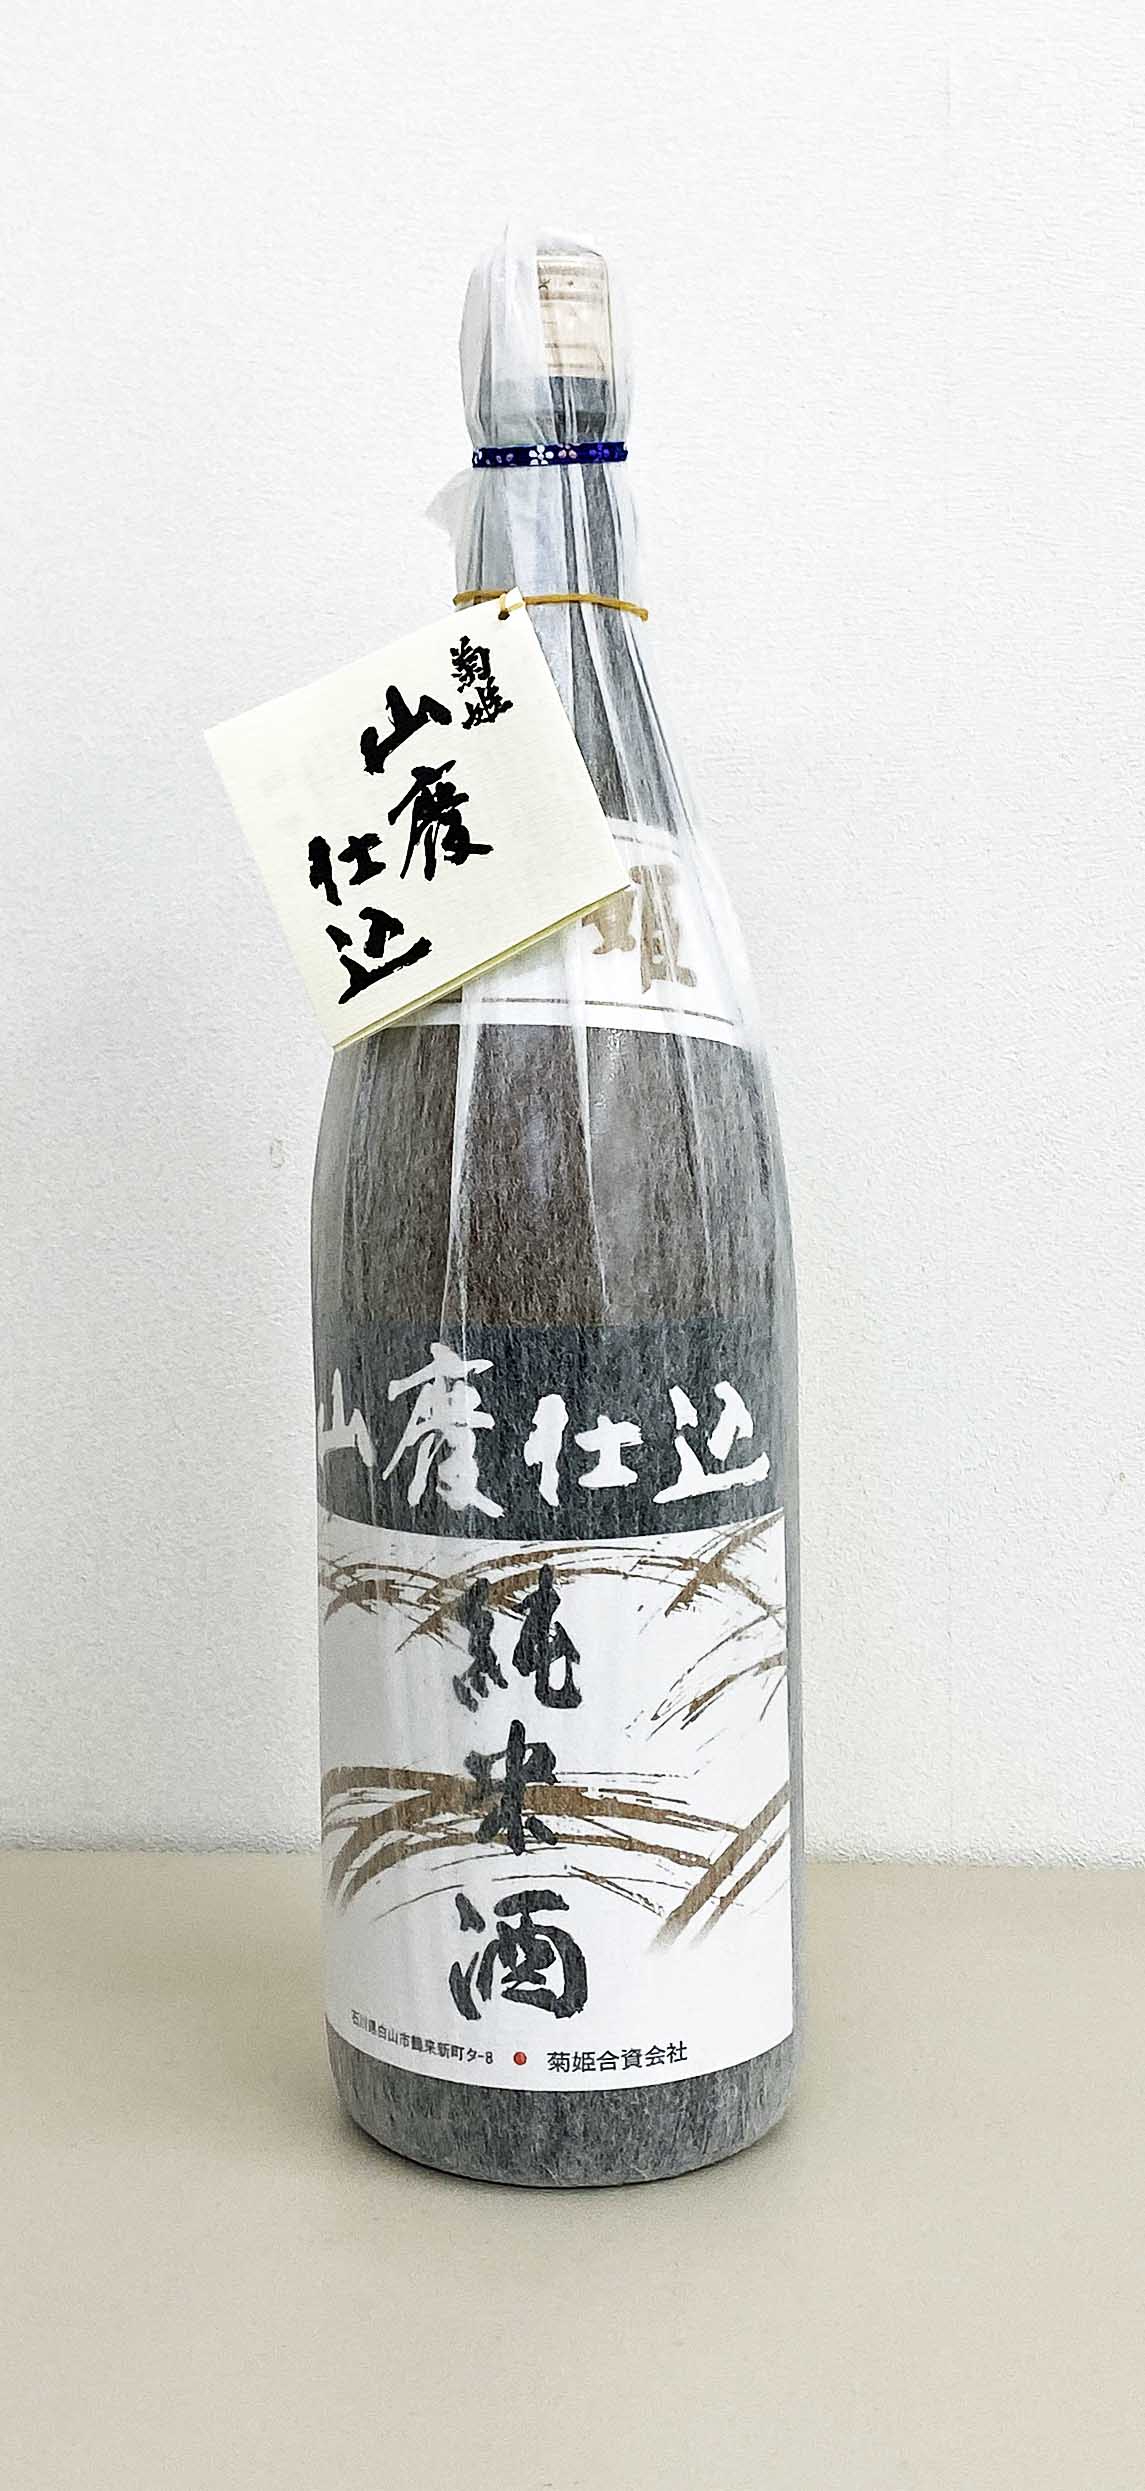 菊姫
山廃
仕込
姫
山廃仕込
純米酒
石川県白山市鶴来新町タ-8 ● 菊姫合資会社